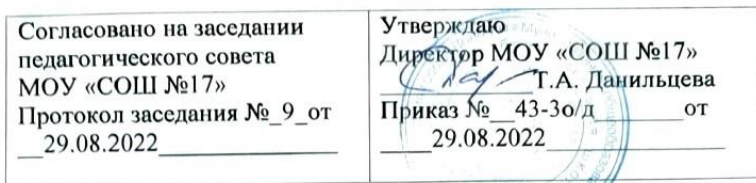 Согласовано на заседании
педагогического совета
МОУ «СОШ №17»
Протокол заседания №_9_от
__29.08.2022________________
Утверждаю
Директор МОУ «СОШ №17»
______________Т.А. Данильцева
Приказ №__43-3о/д________от
____29.08.2022________________